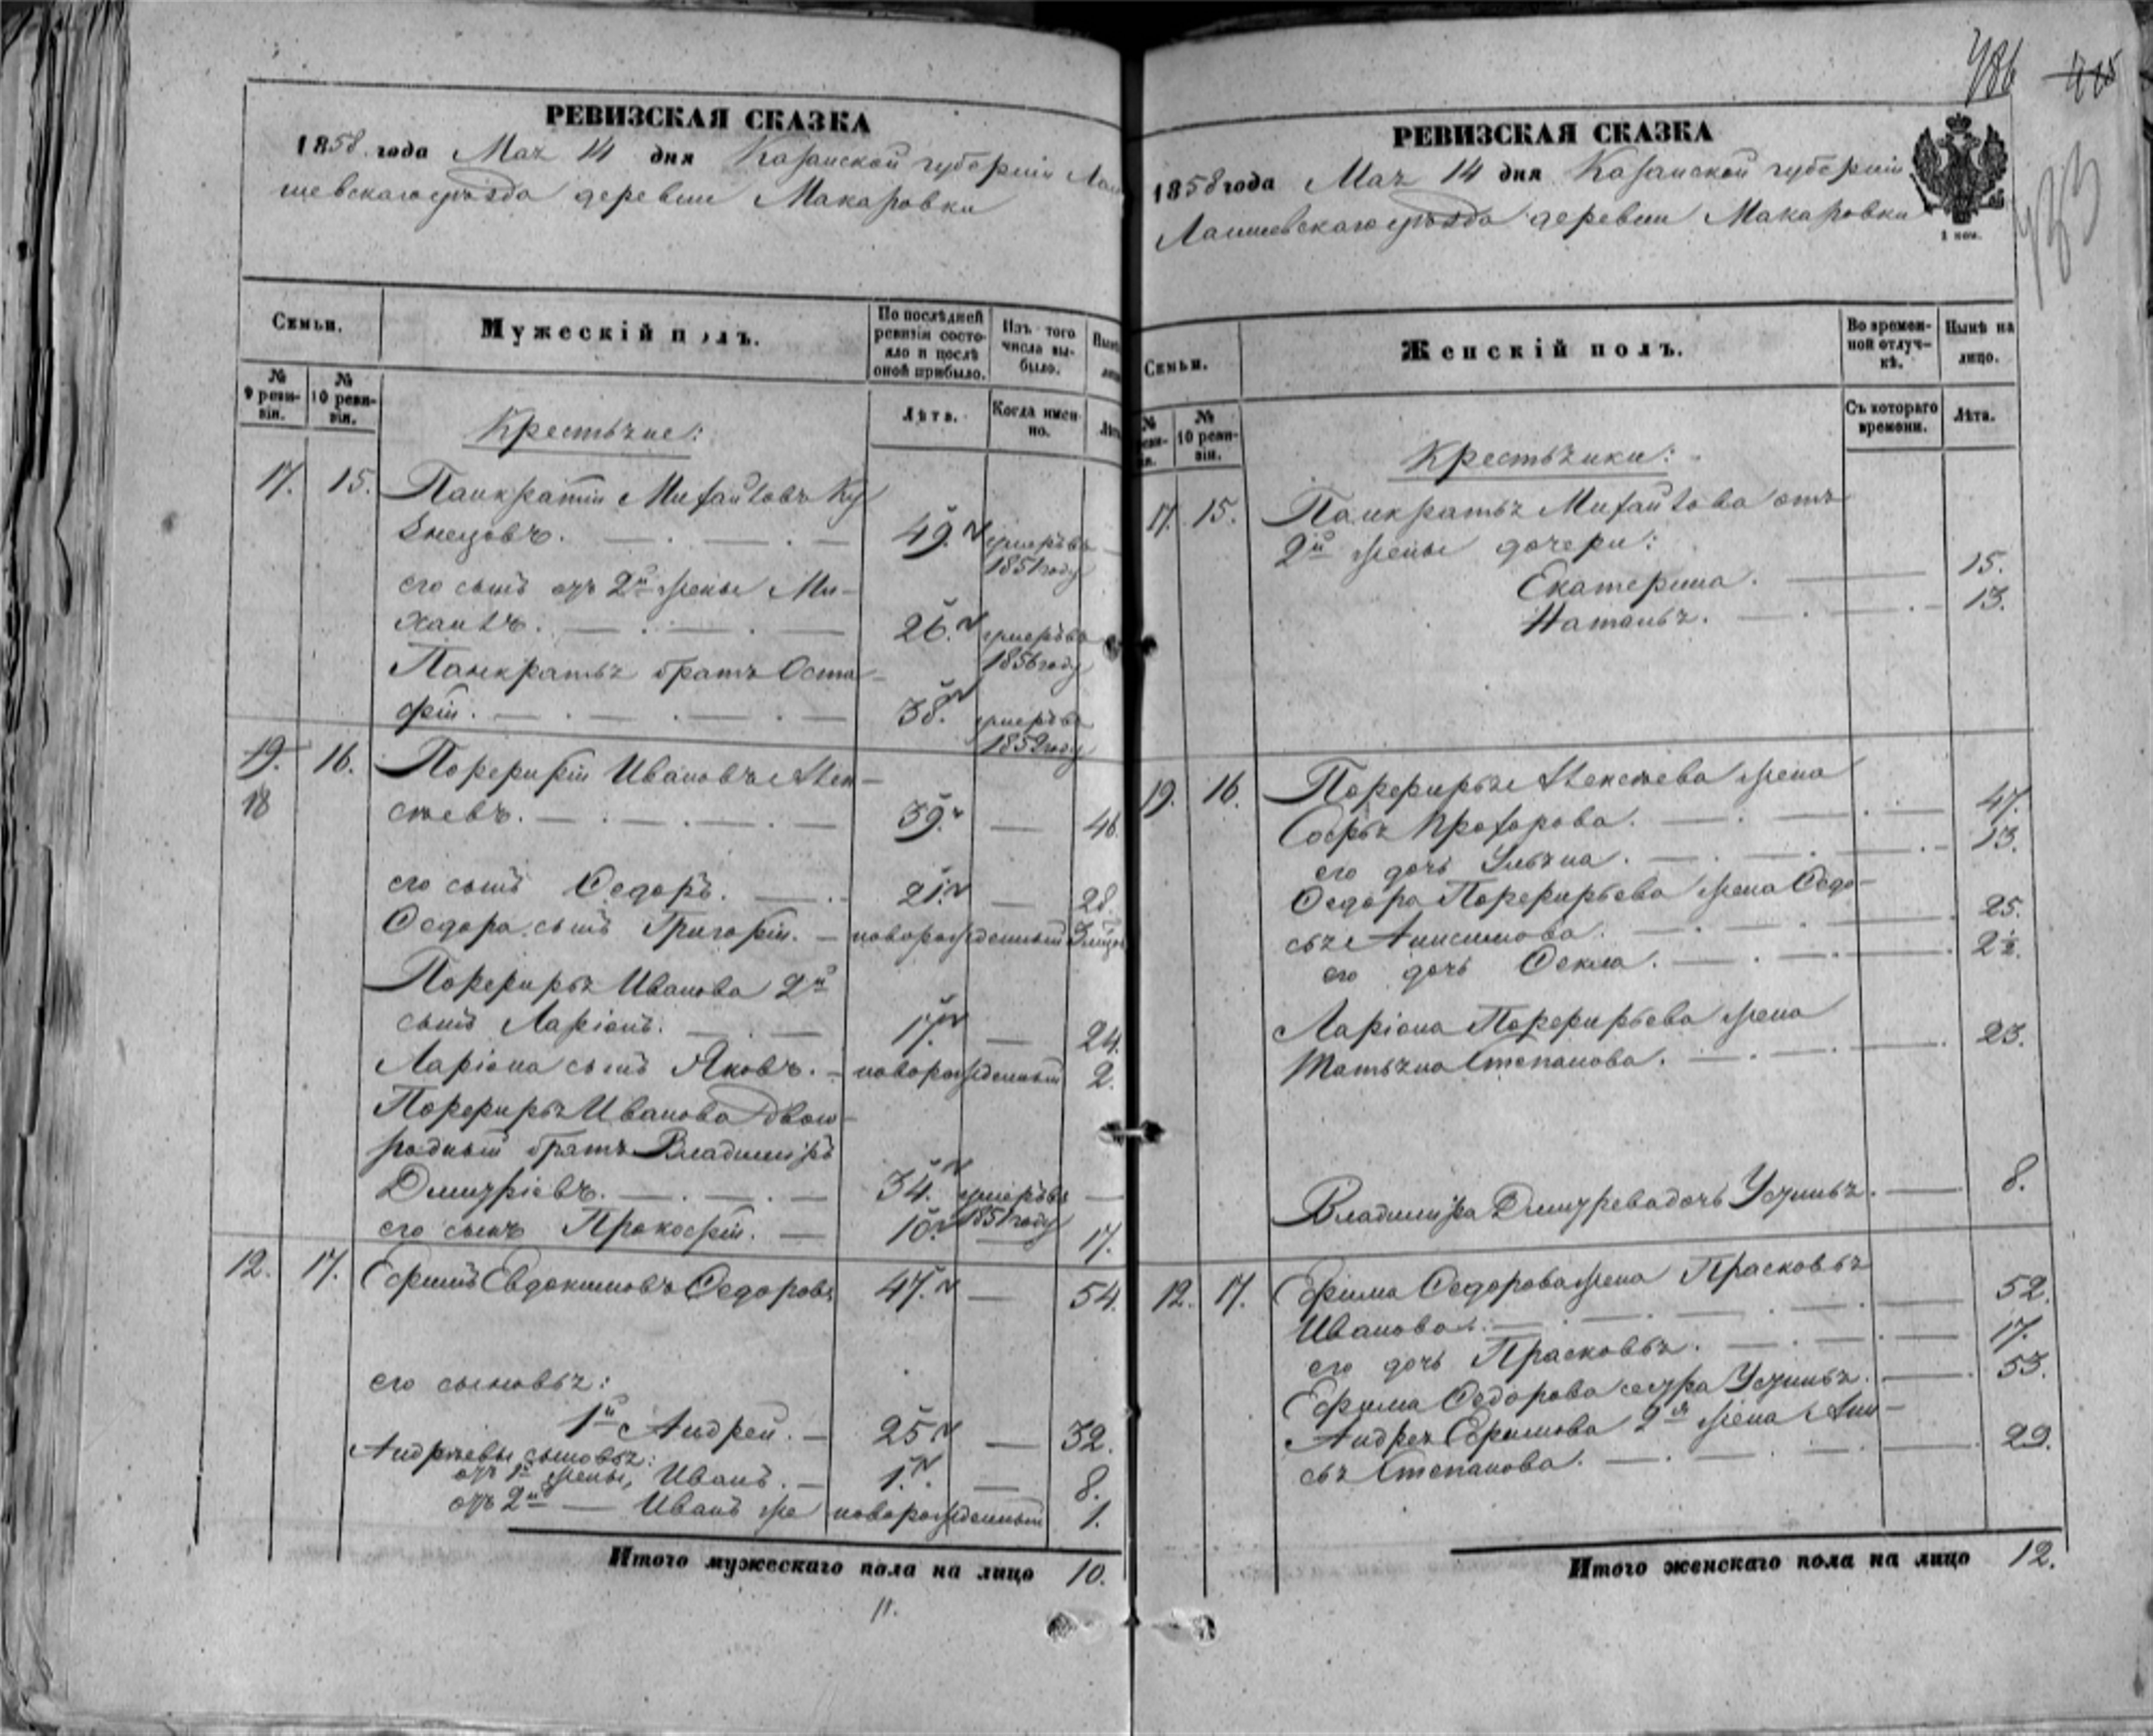 486 485
433
РЕВИЗСКАЯ СКАЗКА
1858 года Мая 14 дня Казанской губерніи Лаи
шевскаго уѣзда деревни Макаровки
Семьи.
Мужескій полъ.
По послѣдней ревизіи состояло и послѣ оной прибыло.
Изъ того числа выбыло.
№ 9 ревизіи.
№ 10 ревизіи.
Лѣта.
Когда именно.
Крестьяне:
17. 15. Панкратій Михайловъ Ку
знецовъ. 49. умеръ въ 1851 году
его сынъ отъ 2й жены Ми-
хаилъ. 26. умеръ въ 1856 году
Панкратья братъ Оста-
фій. 38. умеръ въ 1852 году
19. 16. Порфирій Ивановъ Алек-
18 сѣевъ. 39. — 46.
его сынъ Ѳедоръ. 21. — 28.
Ѳедора сынъ Григорій. — новорожденный
Порфирья Иванова 2й
сынъ Ларіонъ. 17. — 24.
Ларіона сынъ Яковъ. — новорожденный 2.
Порфирья Иванова двою-
родный братъ Владиміръ
Дмитріевъ. 34. умеръ въ 1851 году —
его сынъ Прокофій. — 10. — 17.
12. 17. Ефимъ Евдокимовъ Ѳедоровъ 47. — 54.
его сыновья:
1й Андрей. — 25 — 32.
Андреевы сыновья:
отъ 1й жены, Иванъ. — 1. — 8.
отъ 2й — Иванъ же новорожденный 1.
Итого мужескаго пола на лицо 10.
11.
РЕВИЗСКАЯ СКАЗКА
1858 года Мая 14 дня Казанской губерніи
Лаишевскаго уѣзда деревни Макаровки
1 коп.
Семьи.
Женскій полъ.
Во временной отлучкѣ.
Нынѣ на лицо.
10 ревизіи.
Съ котораго времени.
Лѣта.
Крестьянки:
17. 15. Панкратья Михайлова отъ
2й жены дочери:
Екатерина. 15.
Наталья. 13.
19. 16. Порфирья Алексѣева жена
Софья Прохорова. 47.
его дочь Ульяна. 13.
Ѳедора Порфирьева жена Ѳедо-
сья Анисимова. 25.
его дочь Ѳекла. 2½.
Ларіона Порфирьева жена
Татьяна Степанова. 23.
Владиміра Дмитрева дочь Устинья. 8.
12. 17. Ефима Ѳедорова жена Прасковья
Иванова. 52.
его дочь Прасковья. 17.
Ефима Ѳедорова сестра Устинья. 53.
Андрея Ефимова 2я жена Ани-
сья Степанова. 29.
Итого женскаго пола на лицо 12.